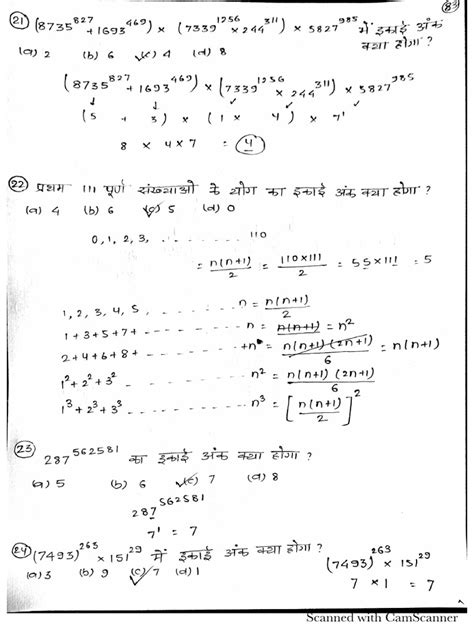 83
(21) (8735^827 + 1693^469) × (7339^1256 × 244^311) × 5827^985 में इकाई अंक क्या होगा ?
(a) 2 (b) 6 (c) 4 (d) 8
(8735^827 + 1693^469) × (7339^1256 × 244^311) × 5827^985
(5 + 3) × (1 × 4) × 7^1
8 × 4 × 7 = 4
(22) प्रथम 111 पूर्ण संख्याओ के योग का इकाई अंक क्या होगा ?
(a) 4 (b) 6 (c) 5 (d) 0
0, 1, 2, 3, ........ 110
= n(n+1)/2 = 110×111/2 = 55×111 = 5
1, 2, 3, 4, 5, ........ n = n(n+1)/2
1+3+5+7+ ........ n = n(n+1) = n^2
2+4+6+8+ ........ +n = n(n+1)(2n+1)/6 = n(n+1)
1^2+2^2+3^2 ........ n^2 = n(n+1)(2n+1)/6
1^3+2^3+3^3 ........ n^3 = [n(n+1)/2]^2
(23) 287^562581 का इकाई अंक क्या होगा ?
(a) 5 (b) 6 (c) 7 (d) 8
287^562581
7^1 = 7
(24) (7493)^263 × 151^29 में इकाई अंक क्या होगा ?
(a) 3 (b) 9 (c) 7 (d) 1
(7493)^263 × 151^29
7 × 1 = 7
Scanned with CamScanner